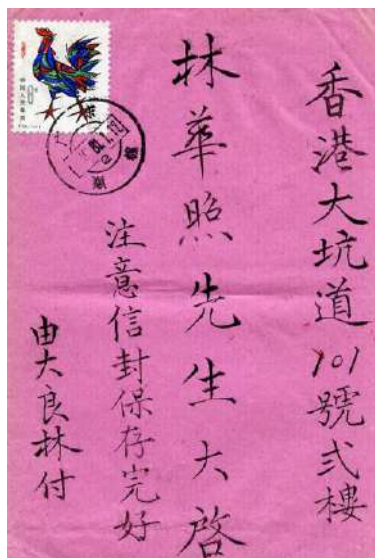 香港大坑道101號弍樓
林華照先生大啓
注意信封保存完好
由大良林付
中国人民邮政